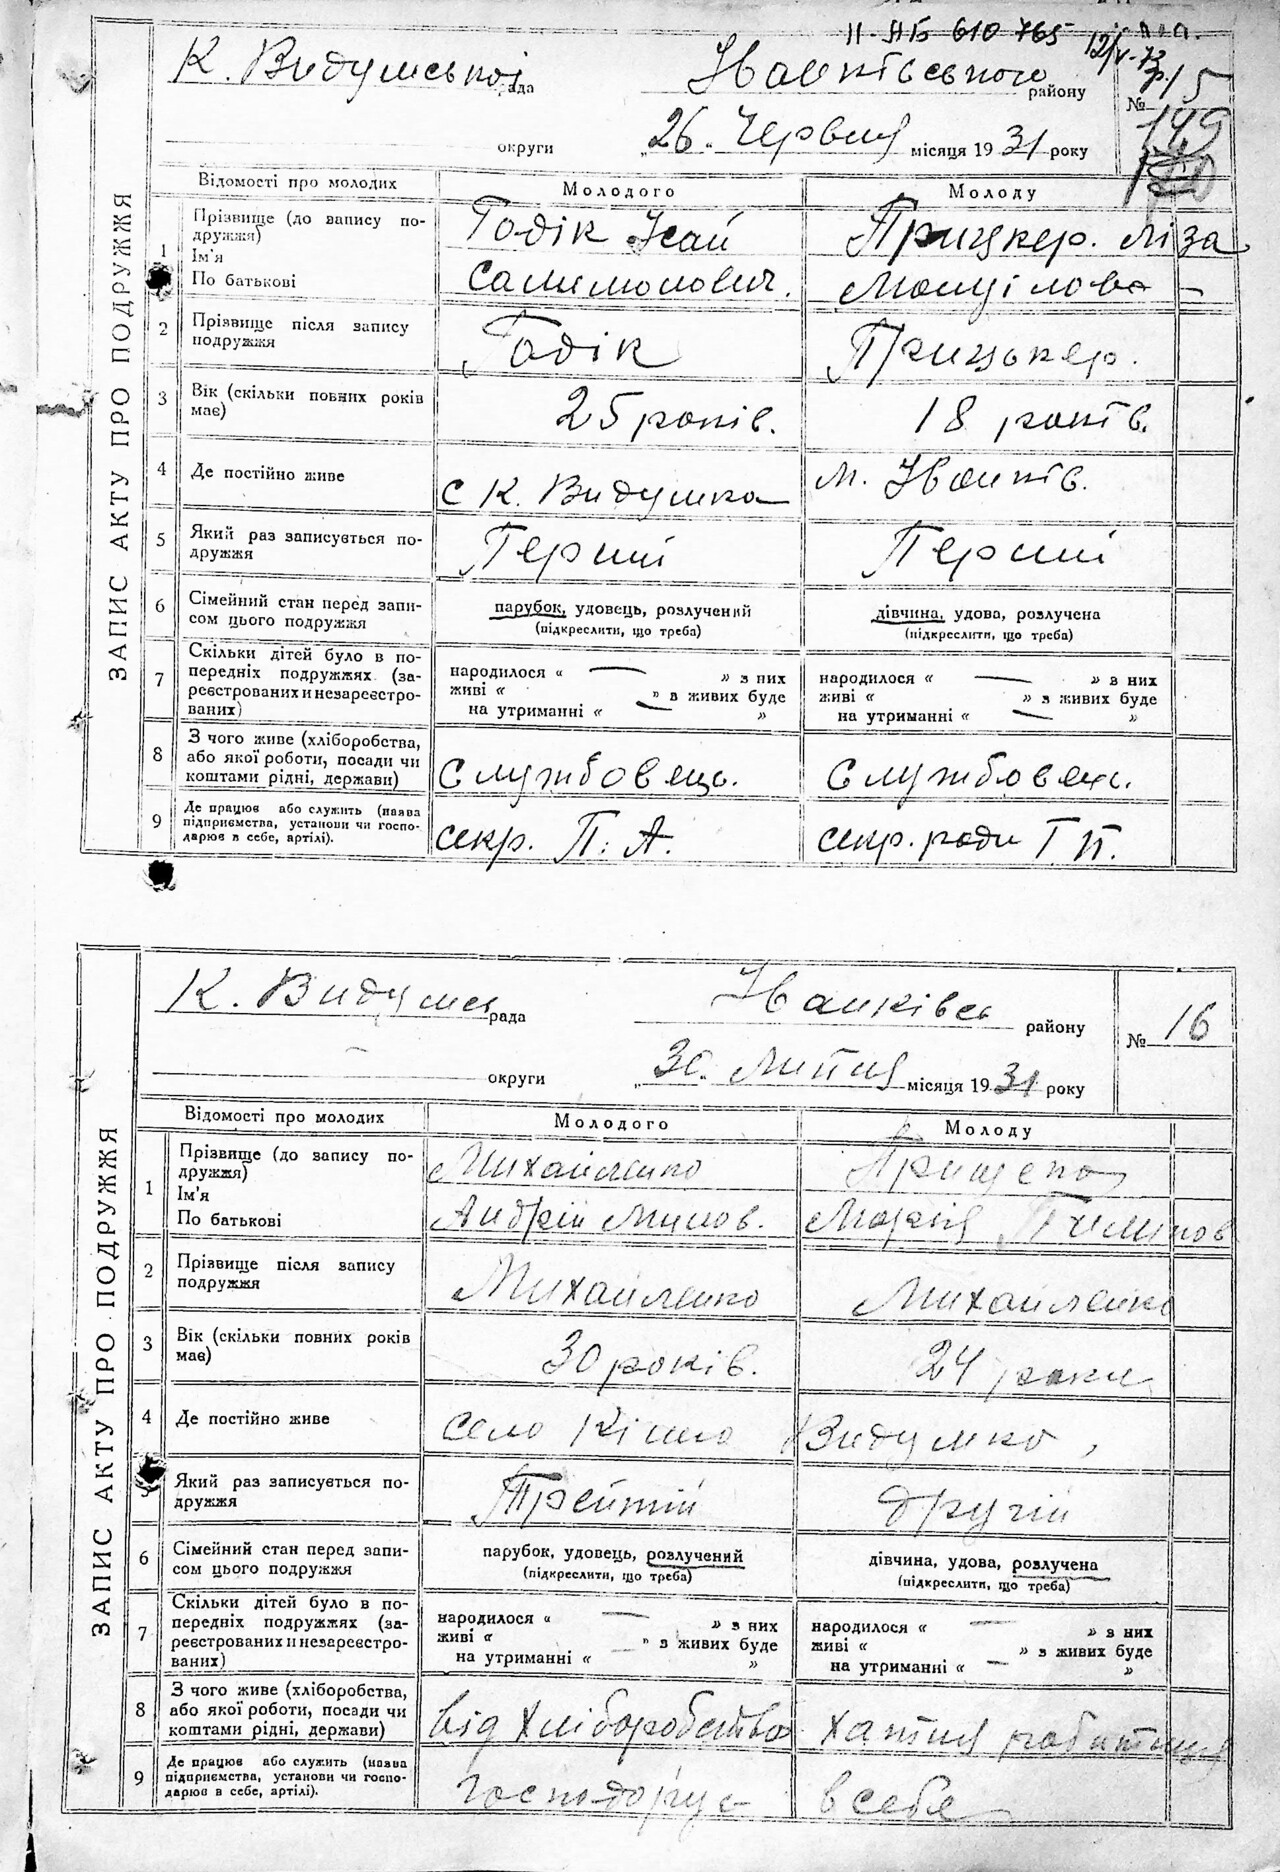 II-АБ 610765
12/V-73р.
К. Видумської рада Іванківського району
№ 15
149
округи „26. Червня місяця 1931 року
ЗАПИС АКТУ ПРО ПОДРУЖЖЯ
Відомості про молодих Молодого Молоду
1 Прізвище (до запису по-
дружжя)
Ім'я
По батькові
Годік Ісай Прицкер. Ліза
2 Прізвище після запису
подружжя
Годік Прицькер.
3 Вік (скільки повних років
має)
25 років. 18 років.
4 Де постійно живе
с К. Видумка м. Іванків.
5 Який раз записується по-
дружжя
Перший Перший
6 Сімейний стан перед запи-
сом цього подружжя
парубок, удовець, розлучений дівчина, удова, розлучена
(підкреслити, що треба) (підкреслити, що треба)
7 Скільки дітей було в по-
передніх подружжях (за-
реєстрованих и незареєстро-
ваних)
народилося « — » з них народилося « — » в них
живі « » в живих буде живі « » з живих буде
на утриманні « — » на утриманні « — »
8 З чого живе (хліборобства,
або якої роботи, посади чи
коштами рідні, держави)
Службовець. Службовець.
9 Де працює або служить (назва
підприємства, установи чи госпо-
дарює в себе, артілі).
секр. П. А. секр. ради Г. П.
К. Видумсь рада Іванківсь району
№ 16
округи „30. Липня місяця 1931 року
ЗАПИС АКТУ ПРО ПОДРУЖЖЯ
Відомості про молодих Молодого Молоду
1 Прізвище (до запису по-
дружжя)
Ім'я
По батькові
Михайленко Прищепа
Андрій Минов. Марія
2 Прізвище після запису
подружжя
Михайленко Михайленко
3 Вік (скільки повних років
має)
30 років. 24 роки
4 Де постійно живе
село Кішо Видумка,
5 Який раз записується по-
дружжя
Третій другій
6 Сімейний стан перед запи-
сом цього подружжя
парубок, удовець, розлучений дівчина, удова, розлучена
(підкреслити, що треба) (підкреслити, що треба)
7 Скільки дітей було в по-
передніх подружжях (за-
реєстрованих и незареєстро-
ваних)
народилося « — » з них народилося « — » з них
живі « — » з живих буде живі « » з живих буде
на утриманні « » на утриманні « — »
8 З чого живе (хліборобства,
або якої роботи, посади чи
коштами рідні, держави)
від хліборобства хатня робітниця
9 Де працює або служить (назва
підприємства, установи чи госпо-
дарює в себе, артілі).
господарує в себе